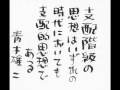 支配階級の
思想はいずれの
時代においても
支配的思想で
ある
青木雄二